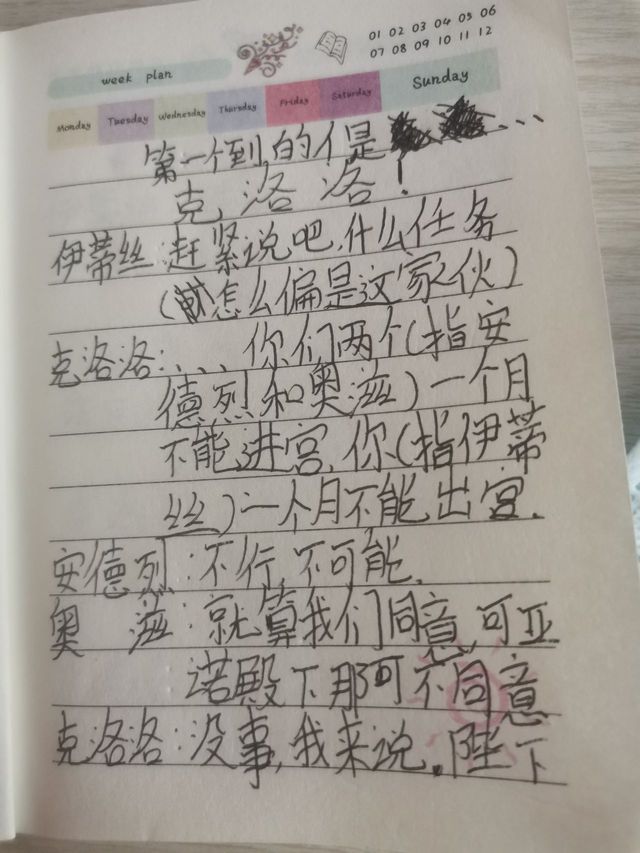 01 02 03 04 05 06
07 08 09 10 11 12
week plan
Monday Tuesday Wednesday Thursday Friday Saturday Sunday
第一个到的个是...
克洛洛!
伊蒂丝:赶紧说吧,什么任务
(怎么偏是这家伙)
克洛洛:、、、你们两个(指安
德烈和奥滋)一个月
不能进宫,你(指伊蒂
丝)一个月不能出宫.
安德烈:不行,不可能.
奥 滋:就算我们同意,可亚
诺殿下那可不同意
克洛洛:没事,我来说。陛下